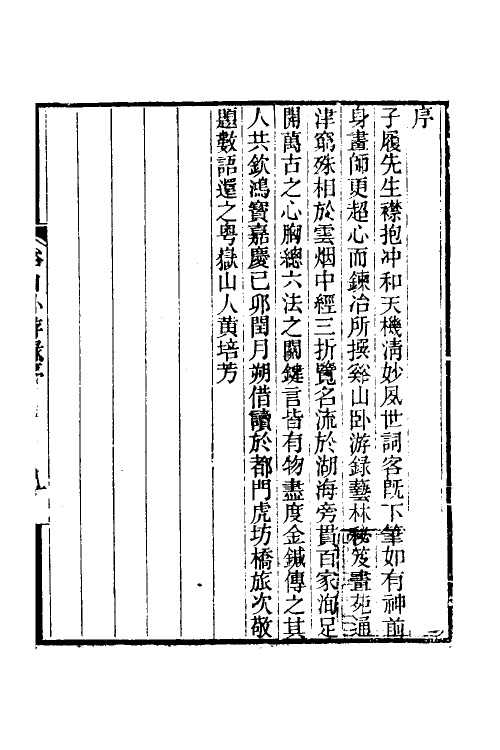 序
子履先生襟抱冲和天機淸妙夙世詞客旣下筆如有神前
身畫師更超心而鍊冶所撰谿山卧游錄藝林秘笈畫苑通
津窮殊相於雲烟中經三折覽名流於湖海旁貫百家洵足
開萬古之心胸總六法之關鍵言皆有物盡度金鍼傳之其
人共欽鴻寶嘉慶己卯閏月朔借讀於都門虎坊橋旅次敬
題數語還之粤嶽山人黃培芳